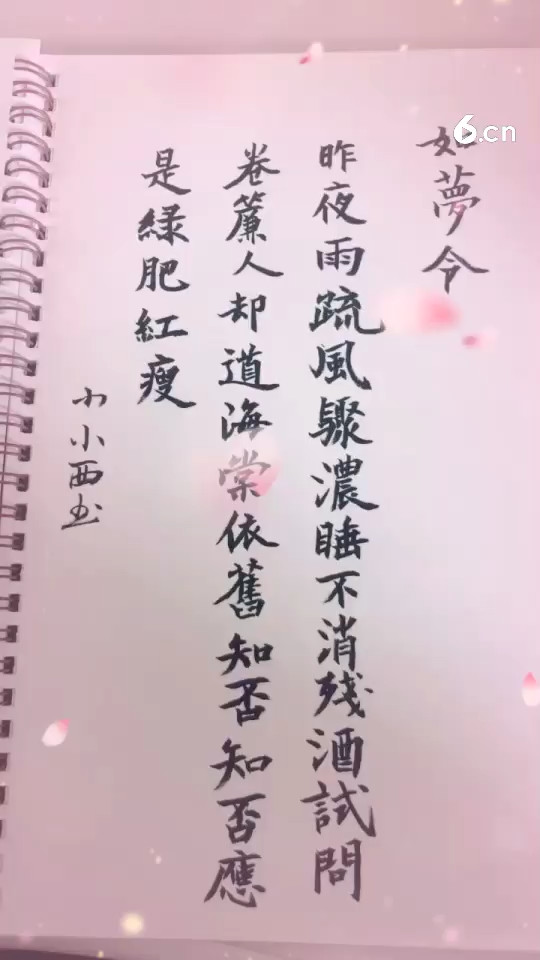 6.cn
如夢令
昨夜雨疏風驟濃睡不消殘酒試問
卷簾人却道海棠依舊知否知否應
是綠肥紅瘦
小西书